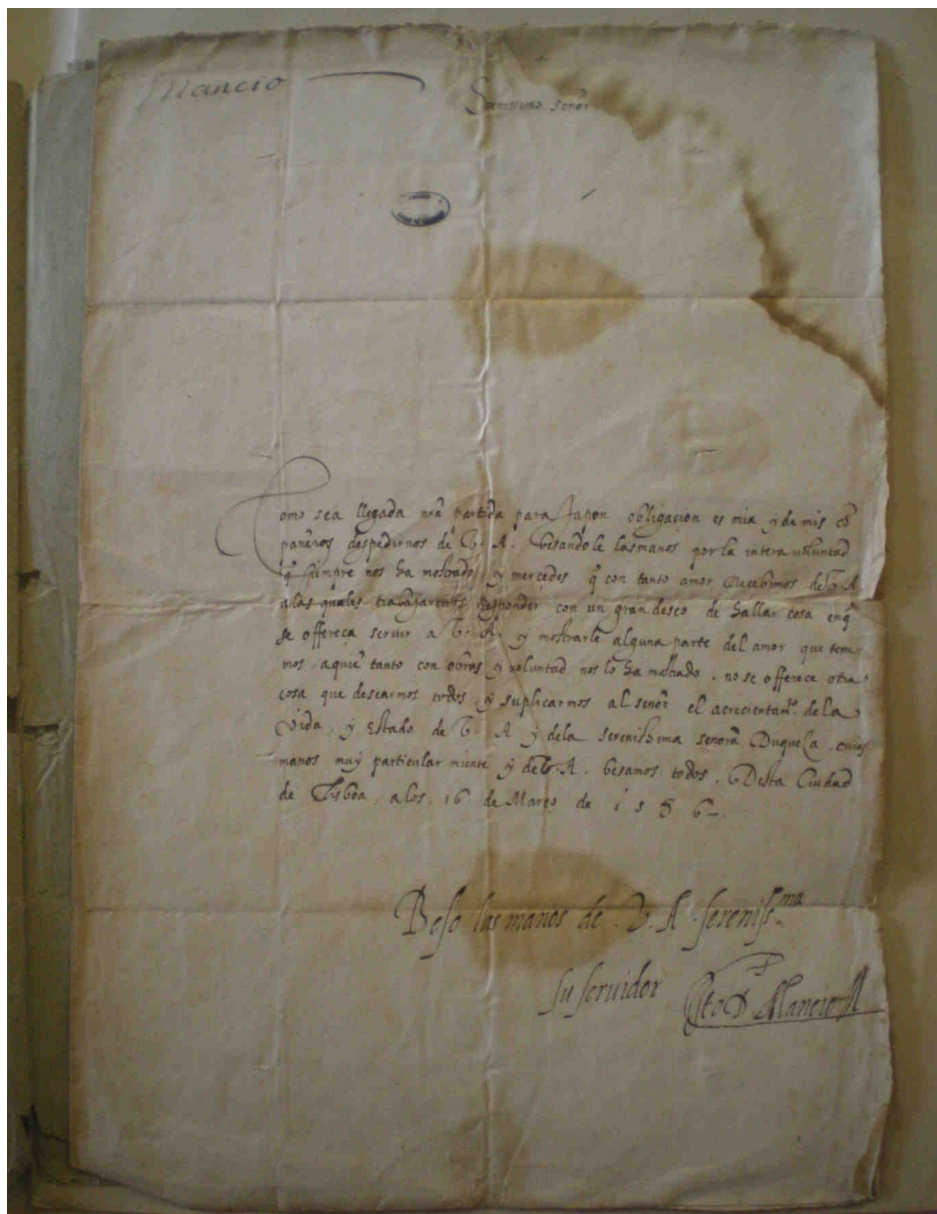 Mancio
Serenissimo señor
Como sea llegada nr̃a partida para Japon obligaçion es mia y de mis cõ
pañeros despedirnos de V. A. besandole las manos por la intera voluntad
q̃ siempre nos ha mostrado, y merçedes q̃ con tanto amor Recebimos de V. A
a las quales trabajaremos Responder con un gran deseo de hallar cosa en q̃
se offereça seruir a V. A. y mostrarle alguna parte del amor que tene-
mos aquiẽ tanto con obras y voluntad nos lo ha mostrado. no se offerece otra
cosa que desearmos todos y suplicarmos al señor el acrecientam.to de la
Vida, y Estado de V. A y dela serenissima señora Duquesa, cuias
manos muy particular miente y de V. A. besamos todos. Desta Ciudad
de Lisboa a los 16 de Março de 1586.
Beso las manos de V. A. sereniss.ma
su seruidor Ito D. Mancio